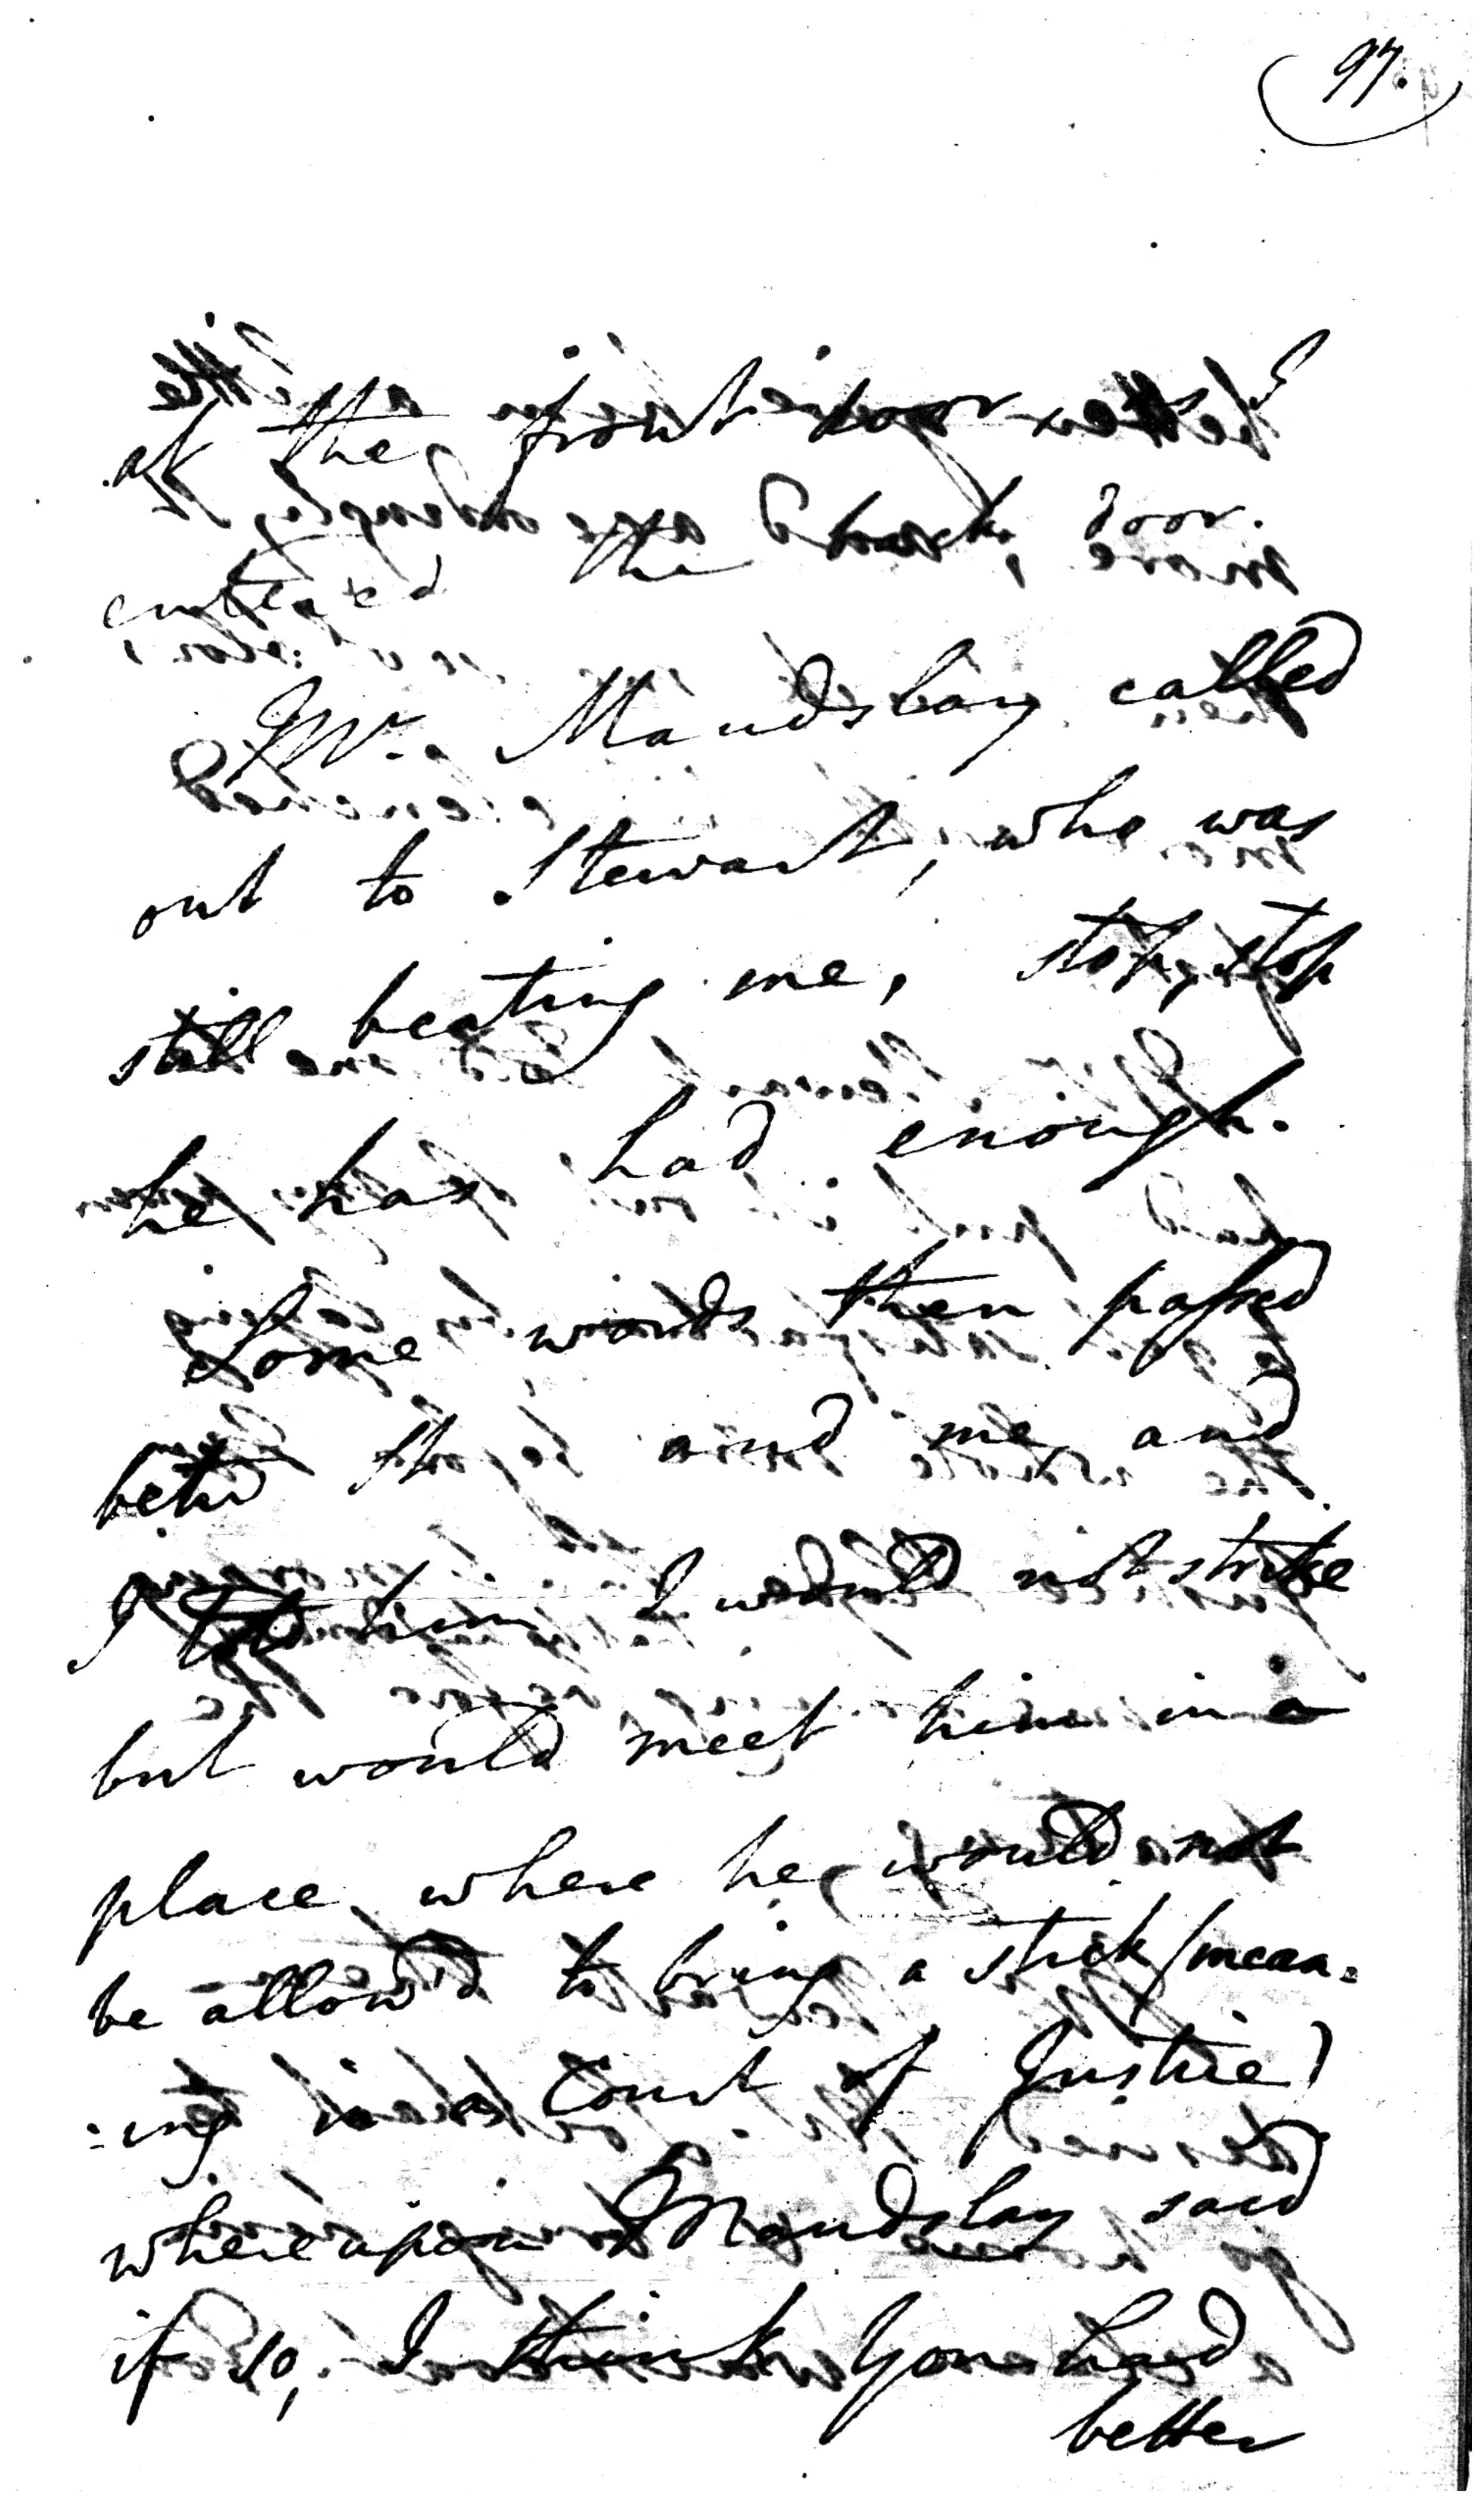 97.
at the front door & I
entered the back door.
Mr. Maudslay called
out to Stewart, who was
still beating me, stop, stop
he has had enough.
Some words then passed
betw St. and me, and
I told him I would not strike
but would meet him in a
place where he would not
be allow'd to bring a stick (mean-
:ing in a Court of Justice)
whereupon Maudslay said
if so, I think you had
better